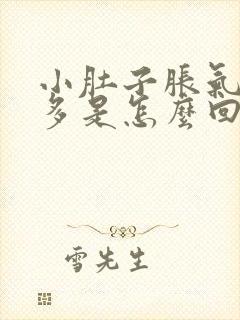 小肚子脹氣
多是怎麼回
雪先生